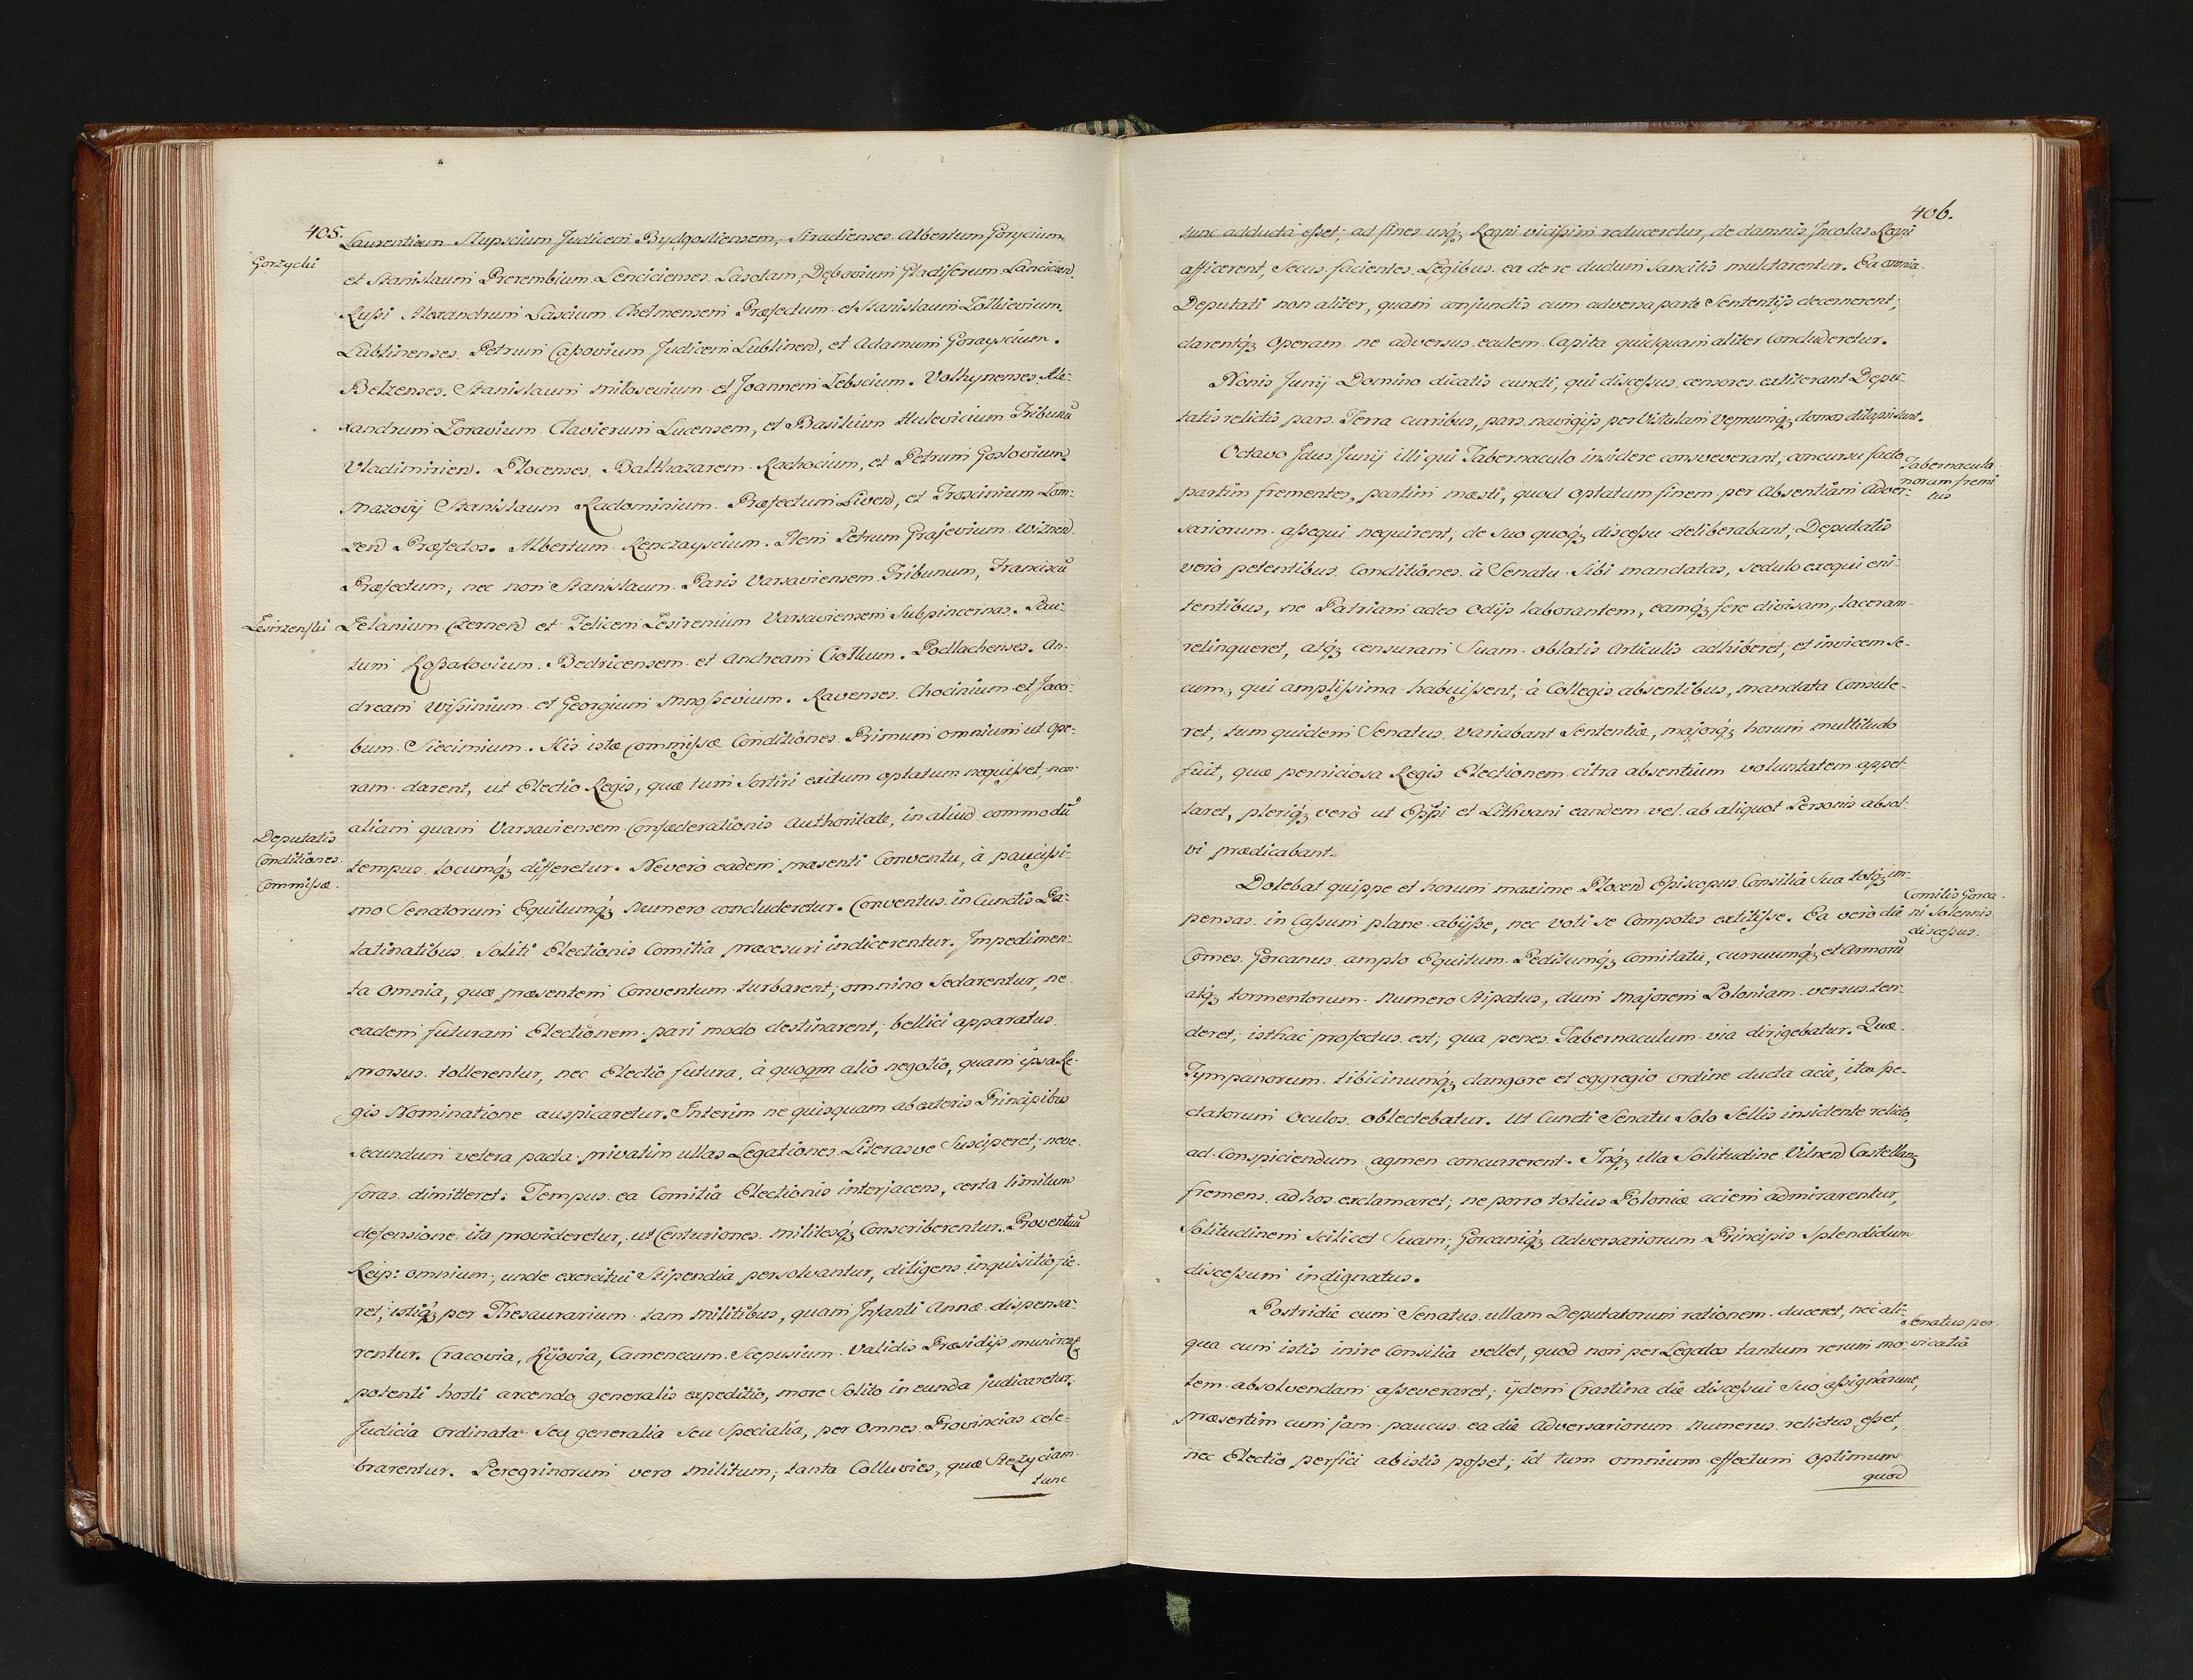 405.
Laurentium Slupscium Judicem Bydgostiensem, Siradienses Albertum Gorycium
Gorzycki
et Stanislaum Prerembium. Lencicienses Lasotam, Dębovium Gladiferum Lancicien̄.
Russi Alexandrum Lascium Chelmensem Præfectum et Stanislaum Zolkievium.
Lublinenses Petrum Cassovium Judicem Lublinen̄, et Adamum Gorayscium.
Belzenses. Stanislaum Milosevium et Joannem Zebscium. Volhynenses Ale-
xandrum Zoravium Clavierum Lucensem, et Basilium Hulevicium Tribunū
Vladimirien̄. Plocenses Balthazarem Rachocium, et Petrum Goslovium.
Mazovij Stanislaum Radominium Præfectum Liven̄, et Troscinium Lom-
zen̄ Præfectos. Albertum Renczayscium. Item Petrum Grajevium Wiznen̄
Præfectum; nec non Stanislaum Paris Varsaviensem Tribunum, Franciscū
Lesirzenski
Lelanium Czernen̄ et Felicem Lesirenium Varsaviensem Subpincernas. Pau-
lum Kossakovium. Bedricensem et Andream Ciollum. Podlachenses. An-
dream Wissinium et Georgium Mnossevium. Ravenses Chocinium et Jaco-
bum Siecimium. His istæ Commissæ Conditiones. Primum omnium ut Ope-
ram darent, ut Electio Regis, quæ tum sortiri exitum optatum nequisset, non
aliam quam Varsaviensem Confæderationis Authoritate, in aliud commodū
Deputatis
Conditiones
Commissæ.
tempus locumq́ꝫ differetur. Ne verò eadem præsenti Conventu, à paucissi-
mo Senatorum Equitumq́ꝫ Numero concluderetur. Conventus in Cunctis Pa-
latinatibus Soliti Electionis Comitia præcesuri indicerentur. Impedimen-
ta Omnia, quæ præsentem Conventum turbarent; omnino Sedarentur, ne
eadem futuram Electionem pari modo destinarent, bellici apparatus
prorsus tollerentur, nec Electio futura, à quoqm alio negotio, quam ipsa Re-
gis Nominatione auspicaretur. Interim ne quisquam ab exteris Principibus
secundum vetera pacta privatim ullas Legationes Literasve Susciperet, neve
foras dimitteret. Tempus ea Comitia Electionis interjacens, certa limitum
defensione ita provideretur, ut Centuriones militesq́ꝫ Conscriberentur. Proventuū
Reip: omnium, unde exercitui Stipendia persolvantur, diligens inquisitio fie-
ret; istiq́ꝫ per Thesaurarium tam Militibus, quam Infanti Annæ dispensa-
rentur. Cracovia, Kijovia, Camenecum Scepusium Validis Præsidijs munirent̄
potenti hosti arcendo generalis expeditio, more Solito in eunda judicaretur.
Judicia Ordinata Seu generalia Seu Specialia, per Omnes Provincias cele-
brarentur. Peregrinorum vero Militum, tanta Colluvies, quæ Stezyciam
tunc
406.
tunc adducta esset, ad fines usq́ꝫ Regni vicissim reduceretur, de damnis Incolas Regni
afficerent, Secus facientes Legibus ea de re dudum Sancitis mulctarentur. Ea omnia
Deputati non aliter, quam conjunctis cum adversa parte Sententijs decernerent;
darentq́ꝫ Operam ne adversus eadem Capita quicquam aliter Concluderetur.
Nonis Junij Domino dicatis cuncti, qui discessus censores extiterant Depu-
tatis relictis pars Terra curribus, pars navigijs per Vistulam Vepreumq́ꝫ domos dilapsi sunt.
Octavo Idus Junij illi qui Tabernaculo insidere consveverant, concursu facto
Tabernacula-
norum fremi
tus
partim frementes, partim mæsti, quod Optatum finem per Absentiam Adver-
sariorum assequi nequirent, de suo quoq́ꝫ discessu deliberabant, Deputatis
verò petentibus Conditiones à Senatu Sibi mandatas, sedulo exequi eni-
tentibus, ne Patriam adeo Odijs laborantem, eamq́ꝫ fere divisam, laceram
relinqueret, atq́ꝫ censuram Suam oblatis Articulis adhiberet, et invicem se-
cum, qui amplissima habuissent, à Collegis absentibus, mandata Consule-
ret; tum quidem Senatus Variabant Sententiæ, majorq́ꝫ horum multitudo
fuit, quæ perniciosa Regis Electionem citra absentium voluntatem appel-
laret, pleriq́ꝫ verò ut Epp̄i et Lithvani eandem vel ab aliquot Personis absol-
vi prædicabant.
Dolebat quippe et horum maxime Plocen̄ Episcopus Consilia Sua totq́ꝫ im-
pensas in Cassum plane abijsse, nec Voti se Compotes extitisse. Ea verò die
Comitis Gorca-
ni Solennis
discessus.
Comes Gorcanus amplo Equitum Peditumq́ꝫ Comitatu, curruumq́ꝫ et Armorū
atq́ꝫ tormentorum Numero Stipatus, dum Majorem Poloniam versus ten-
deret, isthac profectus est, qua penes Tabernaculum via dirigebatur. Quæ
Tympanorum tibicinumq́ꝫ clangore et eggregio ordine ducta acie, ita spe-
ctatorum Oculos oblectebatur. Ut Cuncti Senatu Solo Sellis insidente relicto,
ad Conspiciendum agmen concurrerent. Inq́ꝫ illa Solitudine Vilnen̄ Castellanꝫ
fremens ad hos exclamaret; ne porro totius Poloniæ aciem admirarentur,
Solitudinem scilicet Suam, Gorcaniq́ꝫ Adversariorum Principis Splendidum
discessum indignatus.
Postridie cum Senatus ullam Deputatorum rationem duceret, nec ali-
Senatus per-
vicatia
qua cum istis inire Consilia vellet, quod non per Legatos tantum rerum mo-
lem absolvendam asseveraret; ijdem Crastina die discessui Suo assignârunt,
præsertim cum jam paucus ea die Adversariorum Numerus relictus esset,
nec Electio perfici ab istis posset; id tum omnium effectum Optimum
quod